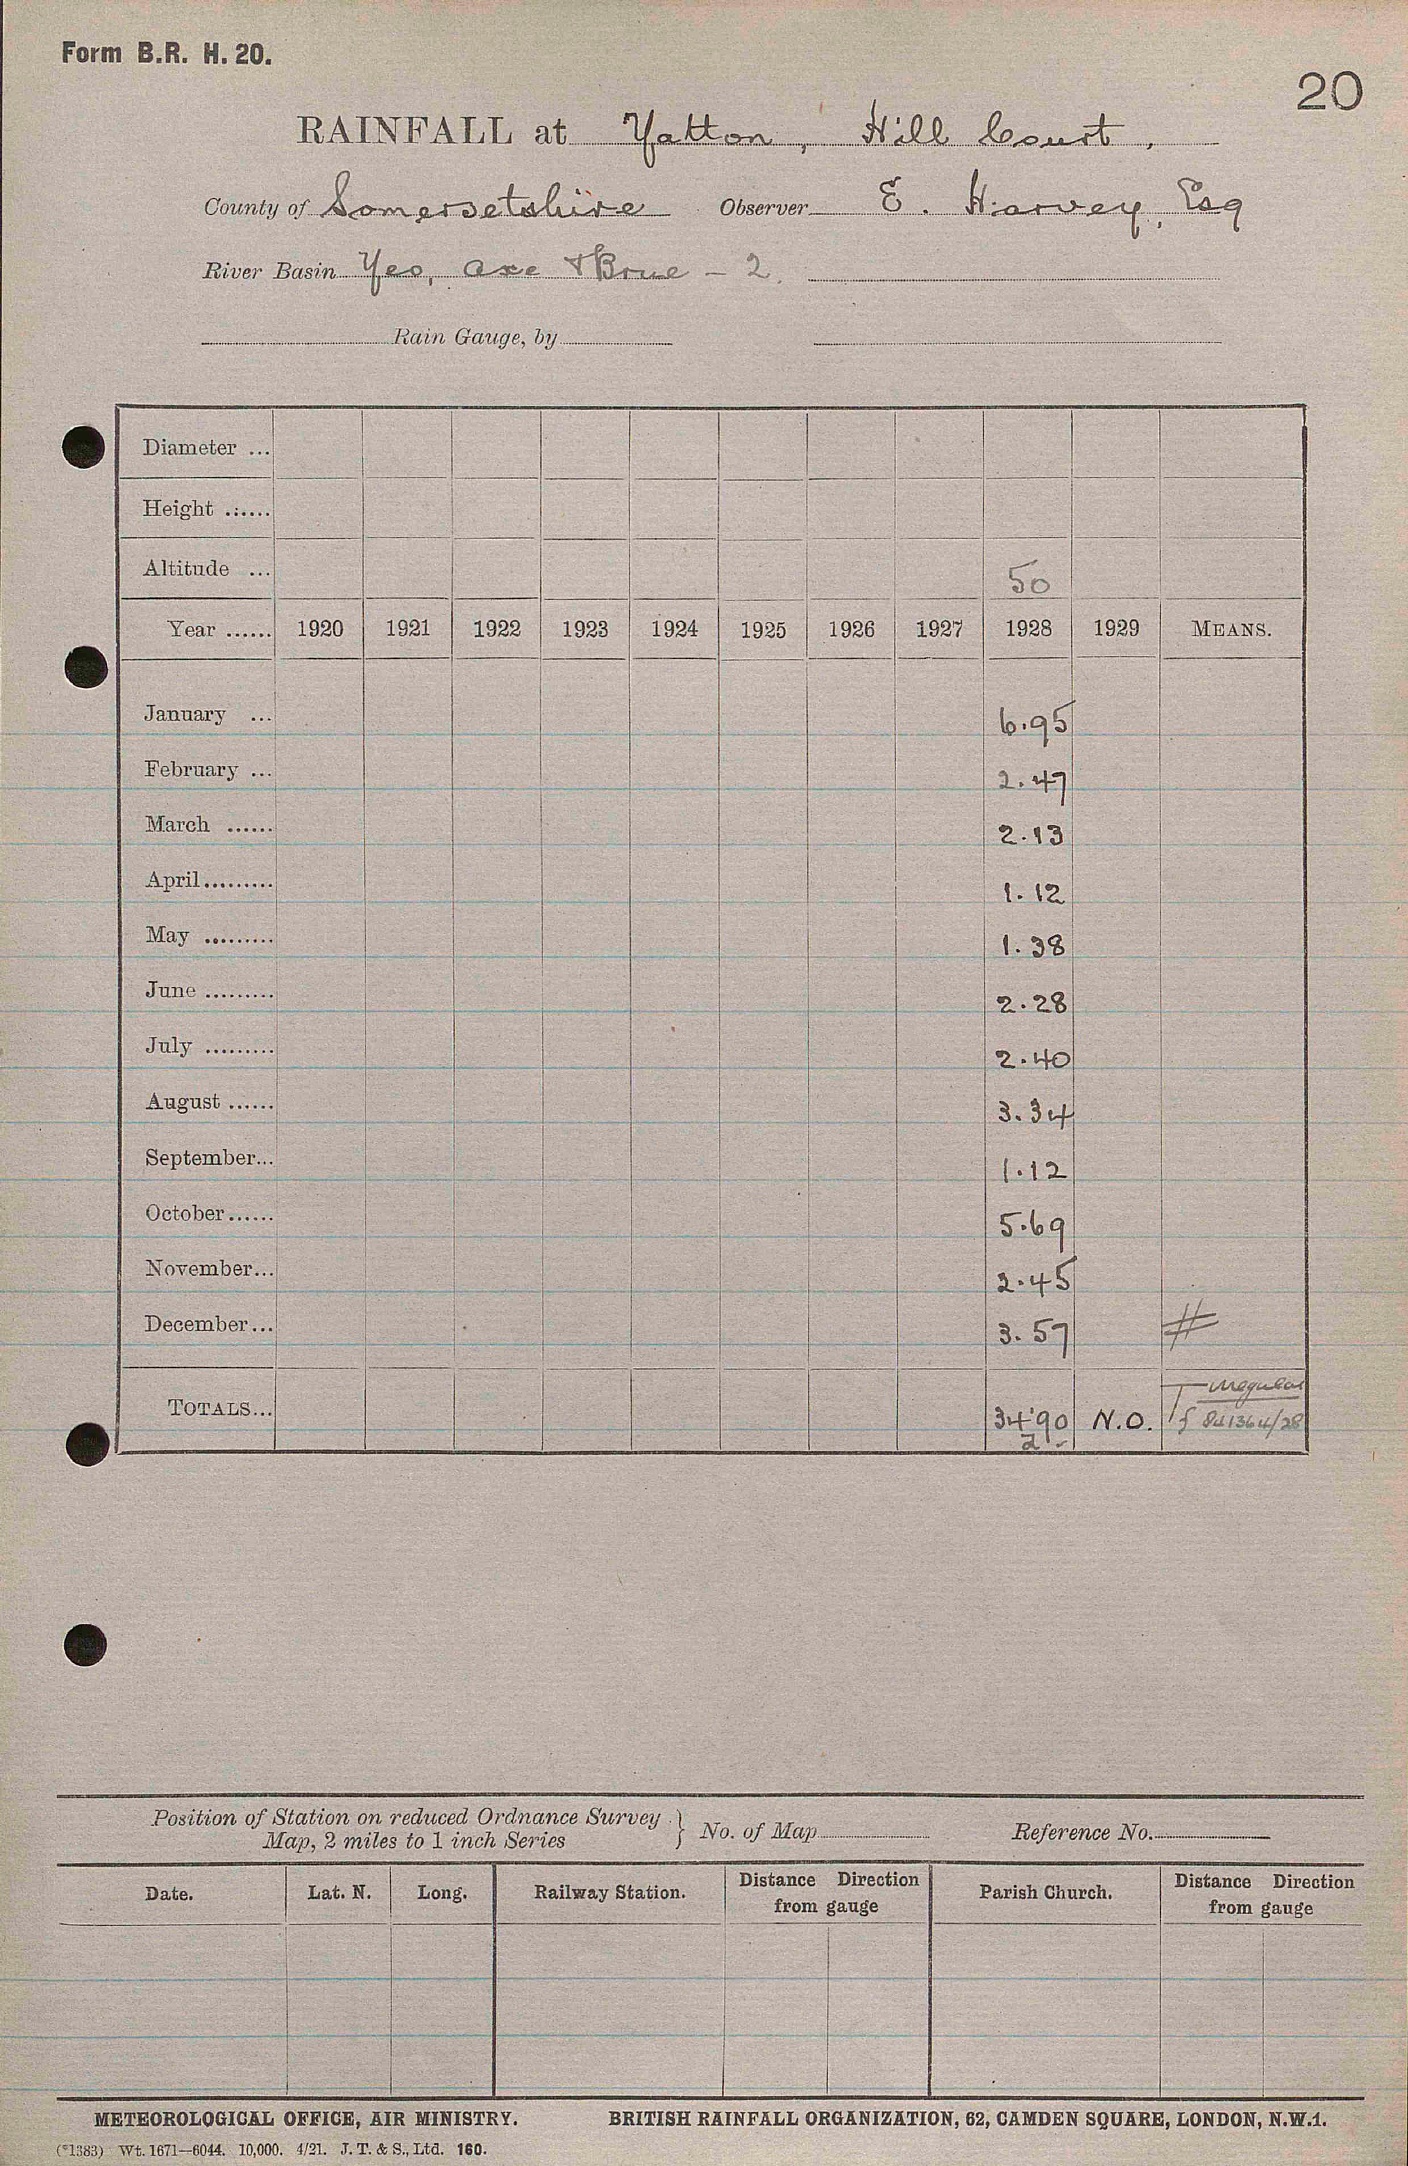 Form B.R. H. 20.
20
RAINFALL at Yatton, Hill Court,
County of Somersetshire Observer E. Harvey, Esq
River Basin Yeo, Axe & Brue - 2.
Rain Gauge, by
Diameter ...
Height ......
Altitude ... 50
Year ...... 1920 1921 1922 1923 1924 1925 1926 1927 1928 1929 MEANS.
January ... 6.95
February ... 2.47
March ...... 2.13
April ......... 1.12
May ......... 1.38
June ......... 2.28
July ......... 2.40
August ...... 3.34
September... 1.12
October ...... 5.69
November... 2.45
December... 3.57 #
Irregular
TOTALS... 34.90 N.O. f 841364/28
2
Position of Station on reduced Ordnance Survey
Map, 2 miles to 1 inch Series } No. of Map Reference No.
Date. Lat. N. Long. Railway Station. Distance Direction from gauge Parish Church. Distance Direction from gauge
METEOROLOGICAL OFFICE, AIR MINISTRY. BRITISH RAINFALL ORGANIZATION, 62, CAMDEN SQUARE, LONDON, N.W.1.
(*1383) Wt. 1671—6044. 10,000. 4/21. J. T. & S., Ltd. 160.